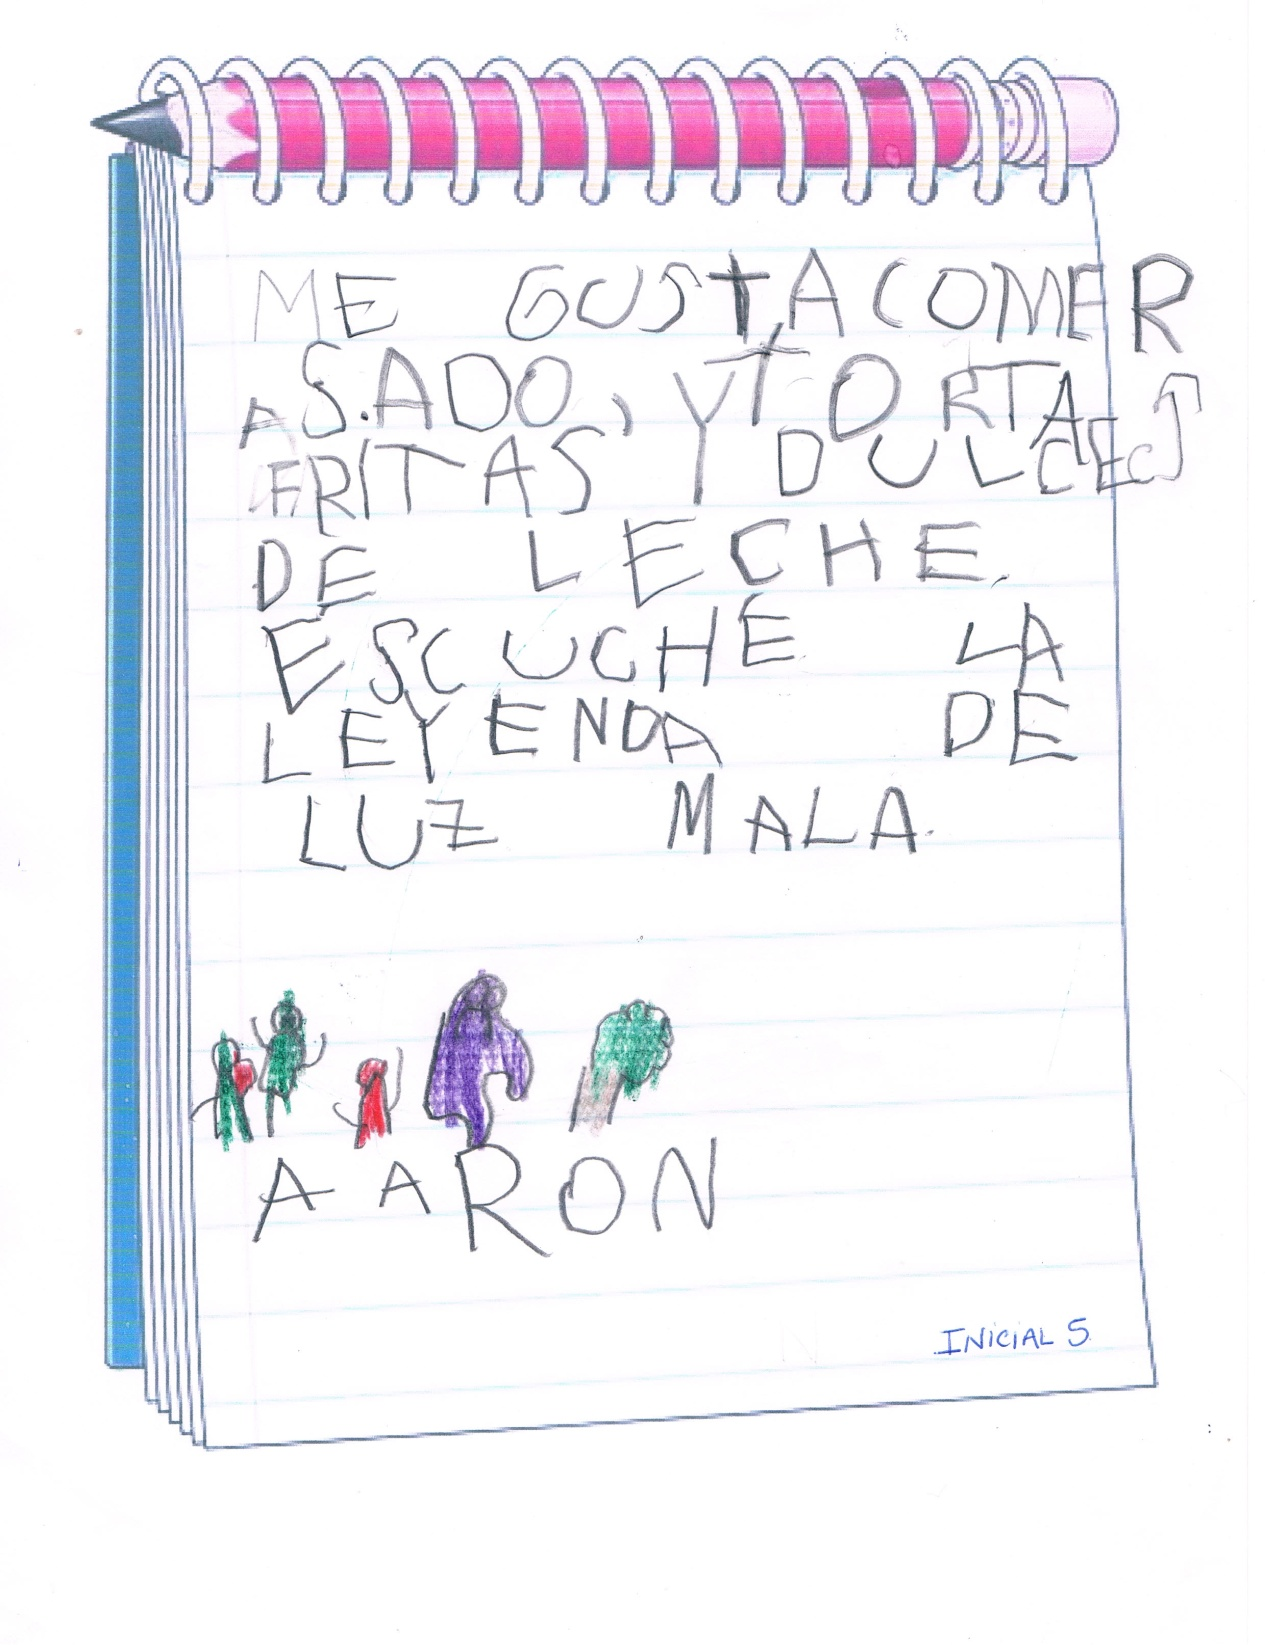 ME GUSTA COMER
ASADO, Y TORTAS
FRITAS Y DULCES
DE LECHE.
ESCUCHE LA
LEYENDA DE
LUZ MALA.
AARON
INICIAL 5